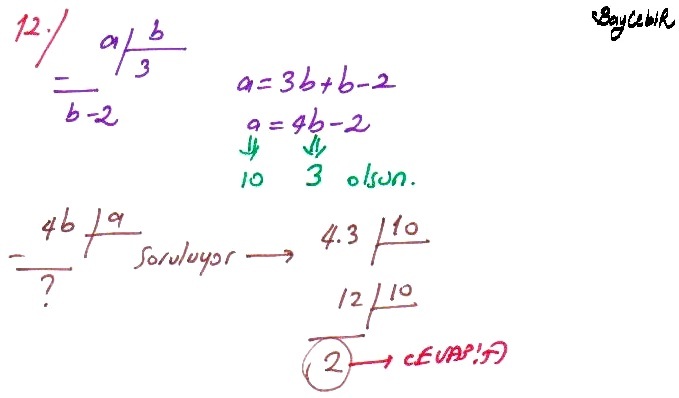 BayCebiR
12.)
a | b
3
b-2
a = 3b+b-2
a = 4b-2
10 3 olsun.
4b | a
?
Soruluyor →
4.3 | 10
12 | 10
2 → CEVAP!